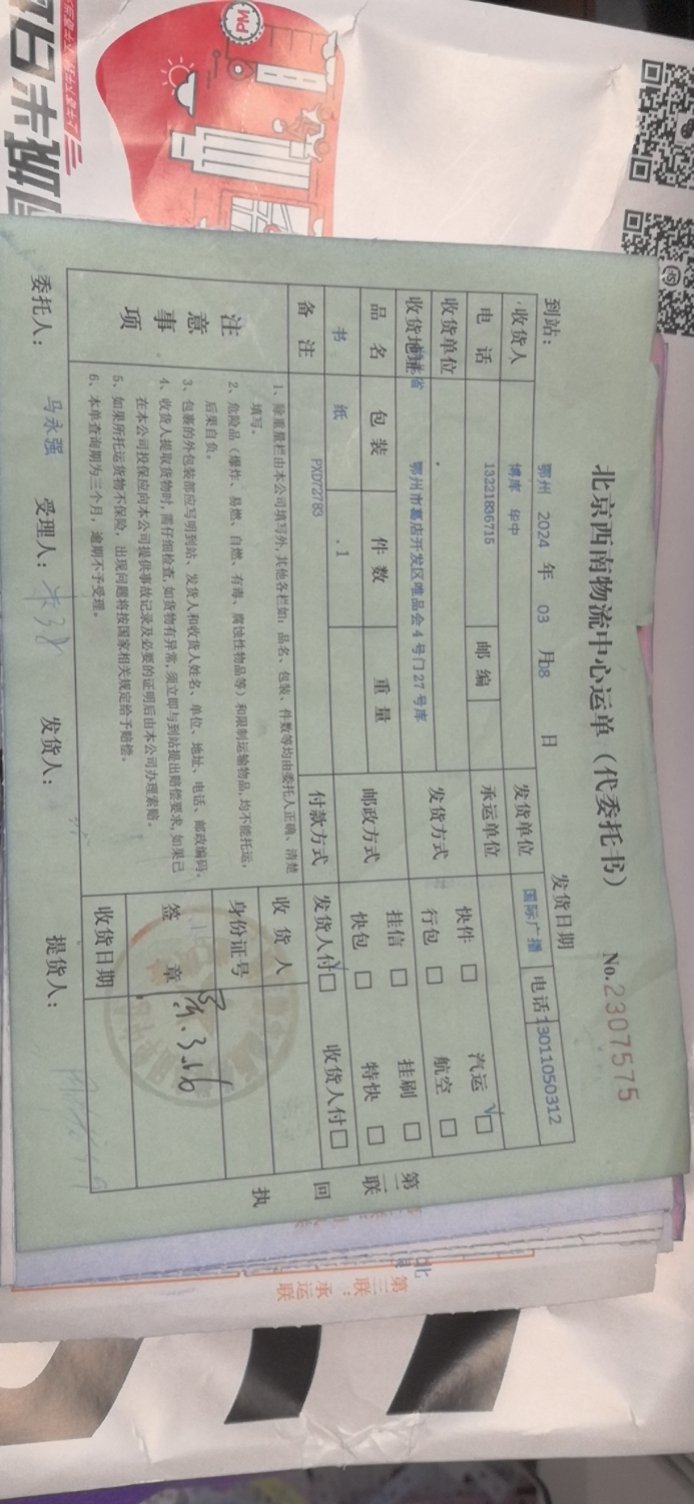 北京西南物流中心运单（代委托书） No.2307575
到站： 鄂州 2024 年 03 月08 日 发货日期
收货人 博库 华中 发货单位 国际广播 电话 13011050312
电话 13221836715 邮编 承运单位
收货单位 发货方式 快件 □ 汽运 √□
行包 □ 航空 □
收货地址 鄂州市葛店开发区唯品会4号门27号库
品名 包装 件数 重量 邮政方式 挂信 □ 挂刷 □
书 纸 1 快包 □ 特快 □
备注 PXD72783 付款方式 发货人付□ 收货人付□
注意事项
1、除重量栏由本公司填写外,其他各栏如：品名、包装、件数等均由委托人正确、清楚
填写。
2、危险品（爆炸、易燃、自燃、有毒、腐蚀性物品等）和限制运输物品,均不能托运,
后果自负。
3、包裹的外包装部应写明到站、发货人和收货人姓名、单位、地址、电话、邮政编码。
4、收货人提取货物时,需仔细检查,如货物有异常,须立即与到站提出赔偿要求,如果已
在本公司投保应向本公司提供事故记录及必要的证明后由本公司办理索赔。
5、如果所托运货物不保险，出现问题将按国家相关规定给予赔偿。
6、本单查询期为三个月，逾期不予受理。
收货人
身份证号
签章
收货日期
委托人： 马永强 受理人： 发货人： 提货人：
第二联 回执
第三联：承运
PM